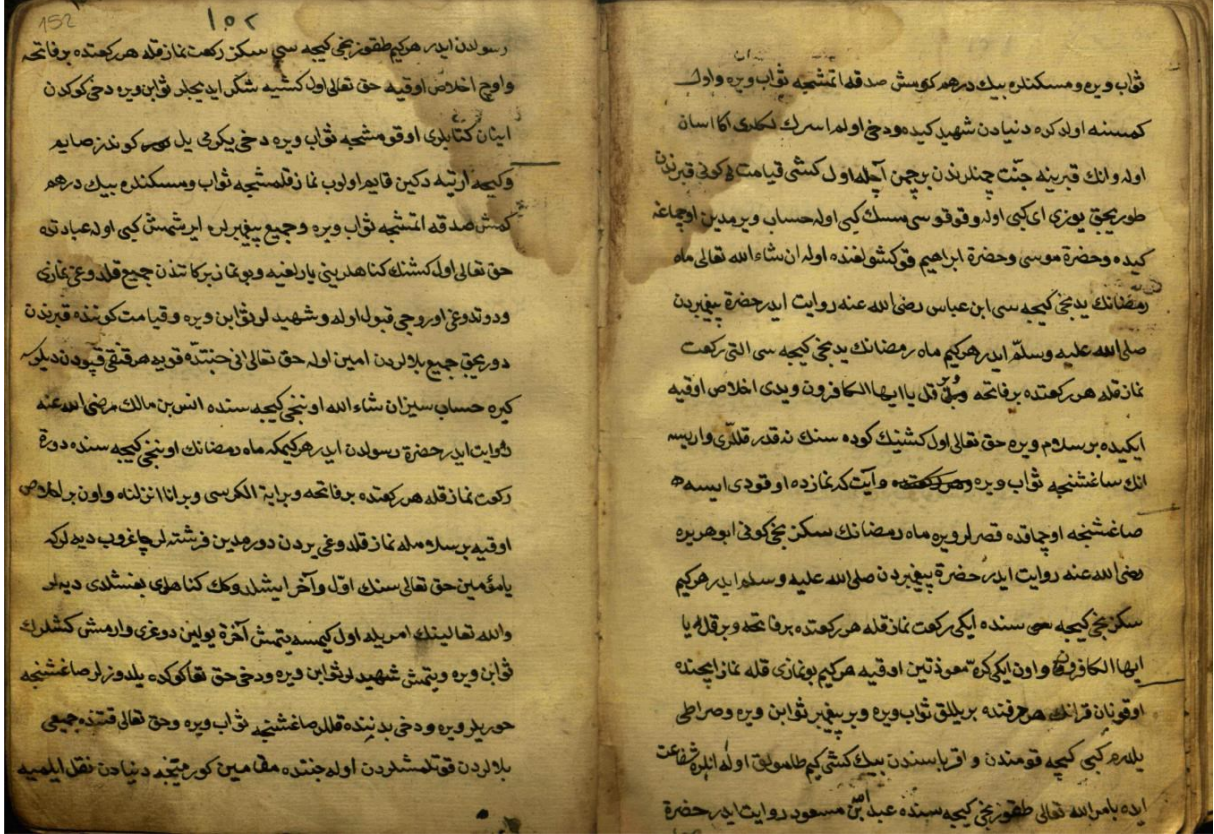 ثواب ویره ومسکنلره بیك درهم کومش صدقه اتمشجه ثواب ویره واول
کمسنه اولرکده دنیادن شهید کیده ودخی اولم اسرك لکلری اکا اسان
اوله وانك قبرینه جنّت چمنلرندن برچمن آچله اول کشی قیامت کونی قبرندن
طوریجق یوزی ای کبی اوله وقوقوسی مسك کبی اوله حساب ویرمدین اوچماغه
کیده وحضرة موسی وحضرة ابراهیم قوکشولغنده اوله ان شاء الله تعالی ماه
رمضانك یدنجی کیجه سی ابن عباس رضی الله عنه روایت ایدر حضرة پیغمبردن
صلی الله علیه وسلّم ایدر هرکیم ماه رمضانك یدنجی کیجه سی التی رکعت
نماز قله هر رکعتده برفاتحه وبر قل یا ایها الکافرون ویدی اخلاص اوقیه
ایکیده بر سلام ویره حق تعالی اول کشینك کوده سنك نه قدر قللری واریسه
انك ساغشنجه ثواب ویره وآیت که نمازده اوقودی ایسه
صاغشنجه اوچماقده قصرلر ویره ماه رمضانك سکزنجی کونی ابوهریره
رضی الله عنه روایت ایدر حضرة پیغمبردن صلی الله علیه وسلم ایدر هرکیم
سکزنجی کیجه سی سنده ایکی رکعت نماز قله هر رکعتده برفاتحه وبر قل یا
ایها الکافرون واون ایکی کرّه معوذتین اوقیه هرکیم بونمازی قله نماز ایچنده
اوقونان قرانك هر حرفنده بر یللق ثواب ویره وبر پیغمبر ثوابن ویره وصراطی
یلدرم کبی کیچه قومندن و اقرباسندن بیك کشی کیم طامولق اوله انلره شفاعت
ایده بامرالله تعالی طقوزنجی کیجه سنده عبدالله بن مسعود روایت ایدر حضرة
152
١٥٢
رسولدن ایدر هرکیم طقوزنجی کیجه سی سکز رکعت نماز قله هر رکعتده برفاتحه
واوچ اخلاص اوقیه حق تعالی اول کشیه شکر ایدیجلر ثوابن ویره دخی کوکدن
اینان کتابلری اوقومشجه ثواب ویره دخی یکرمی یل کوندز صایم
وکیجه ارتیه دکین قایم اولوب نماز قلمشجه ثواب ومسکنلره بیك درهم
کمش صدقه اتمشجه ثواب ویره وجمیع پیغمبرلره ایرشمش کبی اوله عبادتده
حق تعالی اول کشنك کناهلرینی یارلغیه وبو نماز برکاتندن جمیع قلدوغی نمازی
ودوتدوغی اوروجی قبول اوله وشهیدلر ثوابن ویره وقیامت کوننده قبرندن
دوریجق جمیع بلالردن امین اوله حق تعالی انی جنتده قویه هر قنقی قپودن دیلرسه
کیره حساب سیز ان شاء الله اوننجی کیجه سنده انس بن مالك رضی الله عنه
روایت ایدر حضرة رسولدن ایدر هرکیمکه ماه رمضانك اوننجی کیجه سنده دورة
رکعت نماز قله هر رکعتده برفاتحه وبر ایة الکرسی وبر انا انزلناه واون بر اخلاص
اوقیه بر سلامله نماز قلدوغی یردن دورمدین فرشته لر چاغروب دیه لرکه
یا مؤمین حق تعالی سنك اوّل وآخر ایشلدوکك کناهلری بغشلدی دیه لر
والله تعالینك امریله اول کیمسه یتمش آخرة یولین دوغری وارمش کشلرك
ثوابن ویره ویتمش شهیدلر ثوابن ویره ودخی حق تعا کوکده یلدوزلر صاغشنجه
حوریلر ویره ودخی بدنینده قللر صاغشنجه ثواب ویره وحق تعالی قتنده جمیعی
بلالردن قورتلمشلردن اوله جنتده مقامین کورمینجه دنیادن نقل ایلمیه